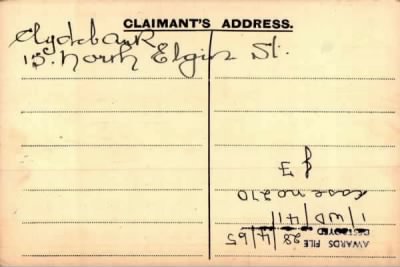 CLAIMANT'S ADDRESS.
Clydebank
15. North Elgin St.
AWARDS FILE
DESTROYED 28/4/65
1/WD/41
Case no 210